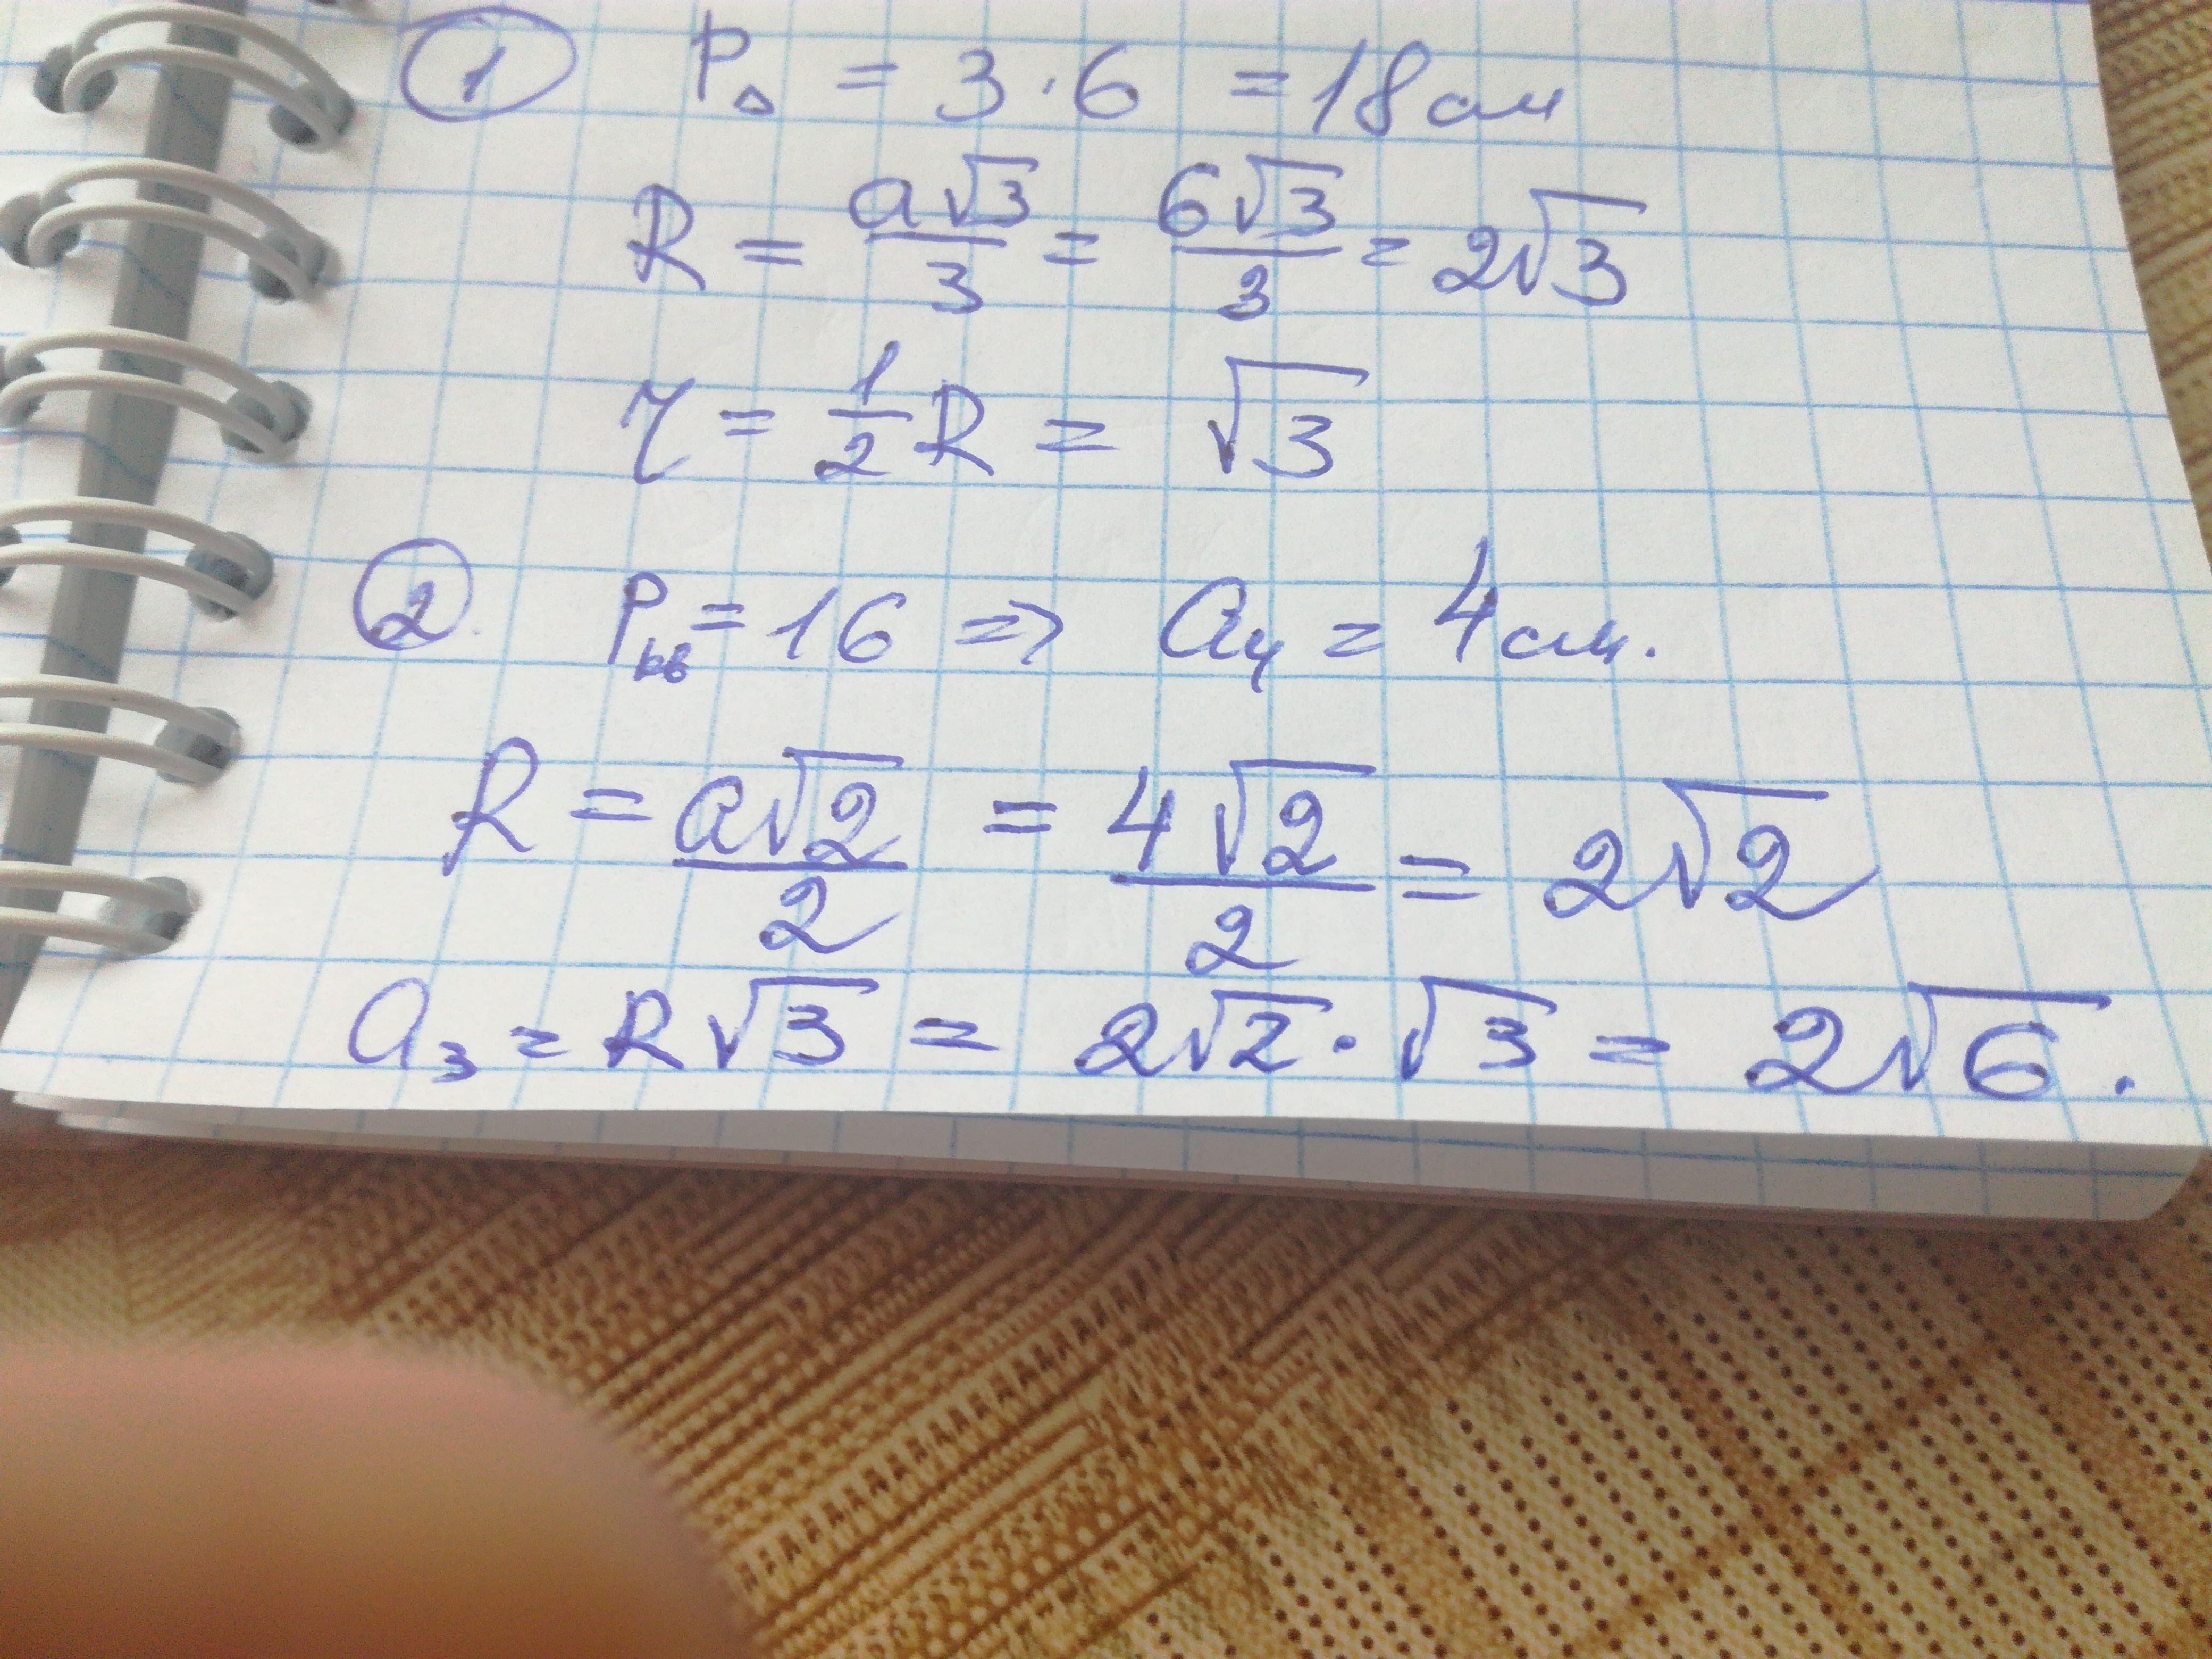 ① P△ = 3·6 = 18 см
R = a√3/3 = 6√3/3 = 2√3
r = 1/2 R = √3
② Pкв = 16 => a₄ = 4 см.
R = a√2/2 = 4√2/2 = 2√2
a₃ = R√3 = 2√2·√3 = 2√6.